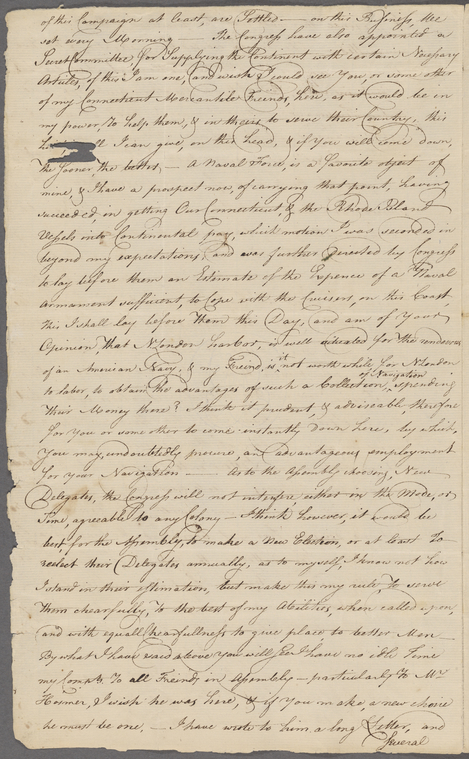 of this Campaign at least are Settled — on this Business, We
set every Morning — The Congress have also appointed a
Secret Committee for Supplying the Continent with certain Necessary
Articles, of this I am one, and wish I could see You, or some other
of my Connecticut Mercantile Friends, here, as it would be in
my power, to help them, & in theirs to serve their Country, this
I can give, on this head, & if you will come down,
the sooner, the better, — A Naval Force, is a favorite object of
mine, & I have a prospect now, of carrying that point, having
succeeded, in getting Our Connecticut, & the Rhode Island
Vessels into Continental pay, which motion I was seconded in
beyond my expectations, and was further directed by Congress
to lay before them an Estimate of the Expence of a Naval
Armament sufficient to Cope with the Cruisers, on this Coast
this I shall lay before them this Day, and am of Your
Opinion that N London harbor, is well situated for the rendezvous
of an American Navy, & my Friend, is it not worth while for N London
to labor, to obtain the advantages of such a Collection of Navigation, spending
their Money there? I think it prudent, & adviseable therefore
for You or some other to come instantly down here, by which
You may, undoubtedly procure, an advantageous employment
for your Navigation — As to the Assembly choosing, New
Delegates, the Congress will not interfere either in the Mode, or
Time, agreable to any Colony — I think however, it would be
best, for the Assembly, to make a New Election, or at least to
reelect their Delegates annually, as to myself, I know not how
I stand in their estimation, but make this my rule, to serve
them chearfully, to the best of my Abilities, when called upon,
and with equall Chearfullness to give place to better Men —
By what I have said above You will See I have no idle Time
my Compts. to all Friends, in Assembly — particularly to Mr
Hosmer, I wish he was here, & if you make, a new choice
he must be one, — I have wrote to him a long Letter, and
Several